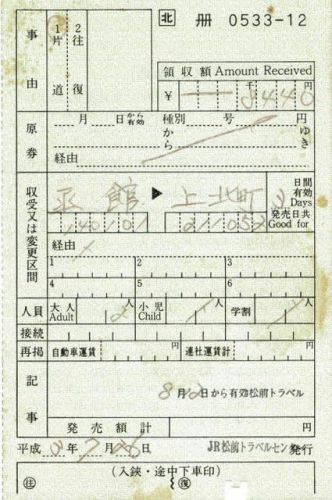 北 冊 0533-12
事由
1片道
2往復
領収額 Amount Received
¥ 千 8440 円
原券
月 日から有効 種別 号 円
から ゆき
経由
収受又は変更区間
函館 ▶ 上北町
日間有効 Days
発売日共 Good for
経由
1 2 3
4 5 6
人員 大人 Adult 人 小児 Child 人 学割 人
接続
再掲 自動車運賃 円 連社運賃計 円
記事
8月 日から有効松前トラベル
発売額計 円
平成 年 7月 日 JR松前トラベルセンター発行
(入鋏・途中下車印)